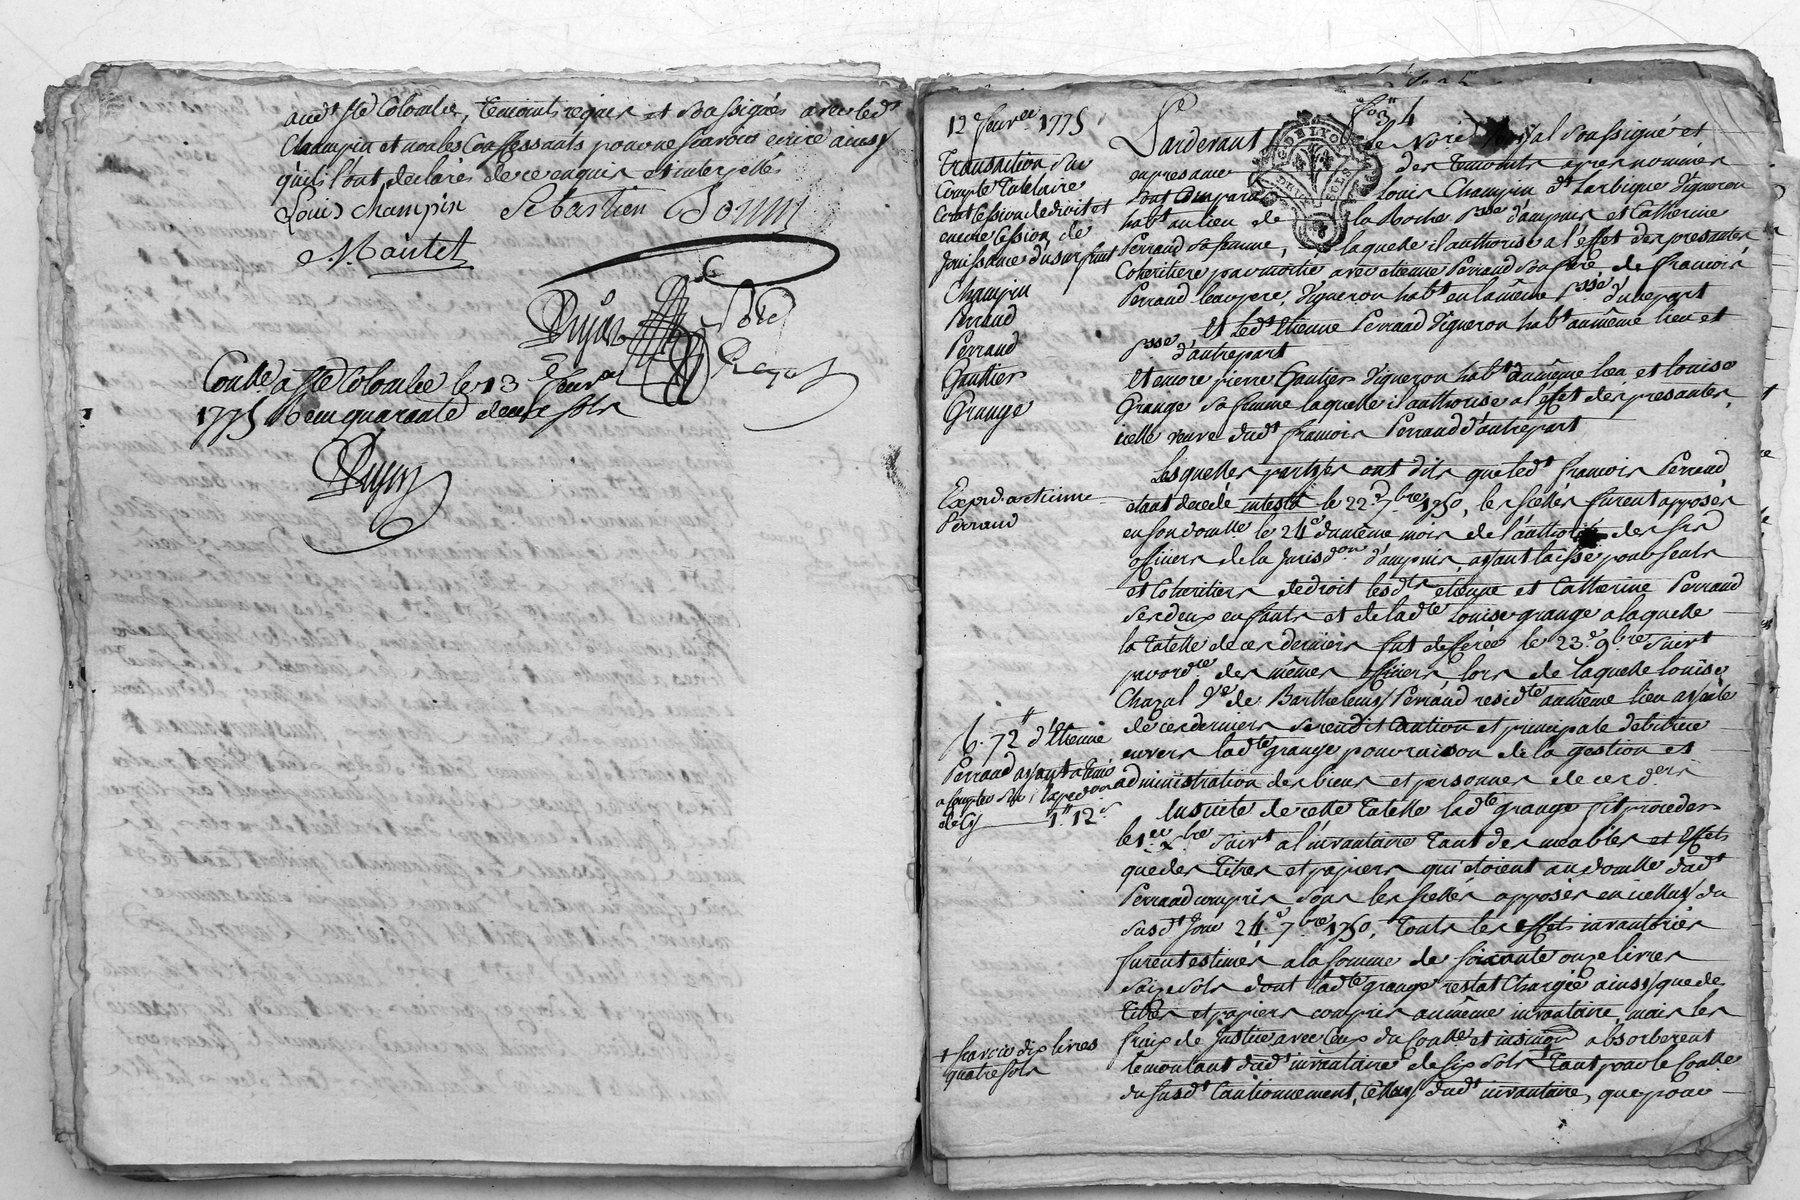 audt Ste Colombe, temoins requis et soussignés avec led
Champin et non les Confessants pour ne scavoir ecrire ainsy
qu'ils l'ont declarés de ce enquis et interpellés
Louis champin Sebastien Bonin
Mantet
Dujar
Conllé a Ste Colombe le 13 feuer
1775 Receu quarante deux sols
Dujar
12 feuree 1775
Transaction sur
Compte Tutelaire
Contt Cession de droit et
encore Cession de
Jouissance d'usufruit
Champin
Perraud
Perraud
Gauttier
Grange
Expd. a etienne
Perraud
R. 72tt d'Etienne
Perraud ayant
a compte sur l'expedon
de Cy 1tt 12s
+ scavoir dix livres
quatre sols
fo 3 4
Pardevant le Nore Royal soussigné et
en presance des temoins apres nommés
sont Comparus Louis Champin dt Larbique Vigneron
habt au lieu de la Roche psse d'ampuis et Catherine
Perraud sa femme, laquelle il authorise a l'effet des presantes
Coheritiere par moitié avec etienne Perraud son frere, de francois
Perraud leur pere, Vigneron habt en la même psse d'une part
Et ledt Etienne Perraud Vigneron habt au même lieu et
psse d'autre part
Et encore pierre Gautier Vigneron habt au même lieu et louise
Grange sa femme laquelle il authorise a l'effet des presantes,
icelle veuve dudt francois Perraud d'autre part
Lesquelles parties ont dits que ledt francois Perraud
etant decedé intestat le 22e 7bre 1750, les scellés furent apposés
en son domlle le 24e du même mois de l'authorité des srs
officiers de la Jurisdon d'ampuis, ayant laissé pour seuls
et Coheritiers de droit lesdts etienne et Catherine Perraud
ses deux enfants et de ladte Louise grange a laquelle
la tutelle de ces derniers fut defferée le 23e 9bre suivt
par ordce des mêmes officiers, lors de laquelle louise
Chazal Ve de Barthelemy Perraud residte au même lieu ayeule
de ces derniers se rendit Caution et principale debitrice
envers ladte grange pour raison de la gestion et
administration des biens et personnes de ces ders
Ensuite de cette tutelle ladte grange fit proceder
le 1er xbre suivt a l'inventaire tant des meubles et effets
que des titres et papiers qui etoient au domlle dudt
Perraud compris sous les scellés apposés en icelluy du
susdt Jour 24e 7bre 1750, touts les effets inventoriés
furent estimés a la somme de soixante onze livres
seize sols dont ladte grange restat Chargée ainsy que des
titres et papiers compris au même inventaire, mais les
fraix de Justice avec ceux du Conlle et insinon absorberent
le montant dudt inventaire de six sols + tant pour le Conlle
du susdt Cautionnement, Celluy dudt inventaire, que pour